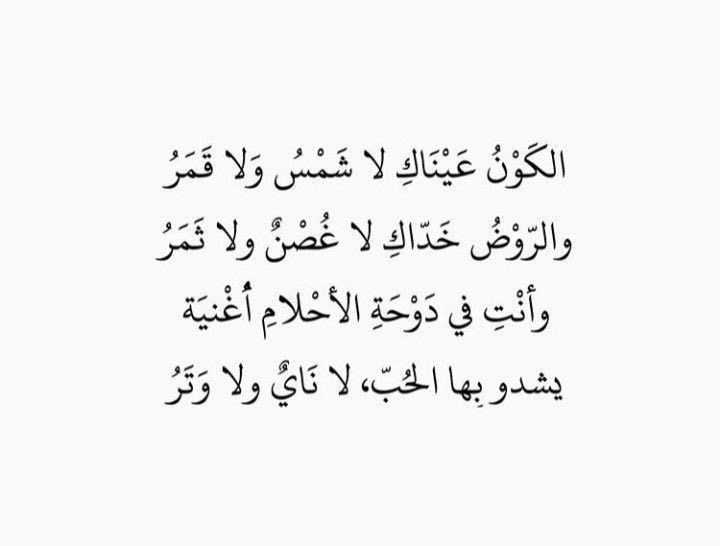 الكَوْنُ عَيْنَاكِ لا شَمْسُ وَلا قَمَرُ
والرّوْضُ خَدّاكِ لا غُصْنٌ ولا ثَمَرُ
وأنْتِ في دَوْحَةِ الأحْلامِ أُغْنيَة
يشدو بِها الحُبّ، لا نَايٌ ولا وَتَرُ